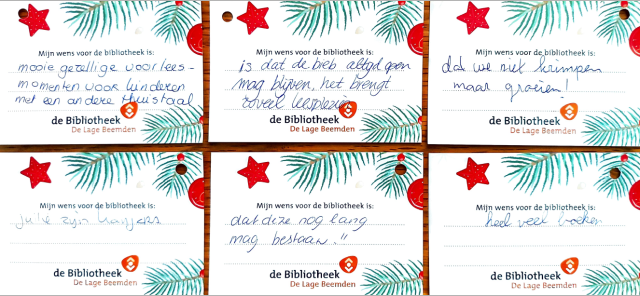 Mijn wens voor de bibliotheek is:
mooie gezellige voorlees-
momenten voor kinderen
met een andere thuistaal
de Bibliotheek
De Lage Beemden
Mijn wens voor de bibliotheek is:
is dat de bieb altijd open
mag blijven, het brengt
zoveel leesplezier
de Bibliotheek
De Lage Beemden
Mijn wens voor de bibliotheek is:
dat we niet krimpen
maar groeien!
de Bibliotheek
De Lage Beemden
Mijn wens voor de bibliotheek is:
jullie zijn kanjers
de Bibliotheek
De Lage Beemden
Mijn wens voor de bibliotheek is:
dat deze nog lang
mag bestaan."
de Bibliotheek
De Lage Beemden
Mijn wens voor de bibliotheek is:
heel veel boeken
de Bibliotheek
De Lage Beemden